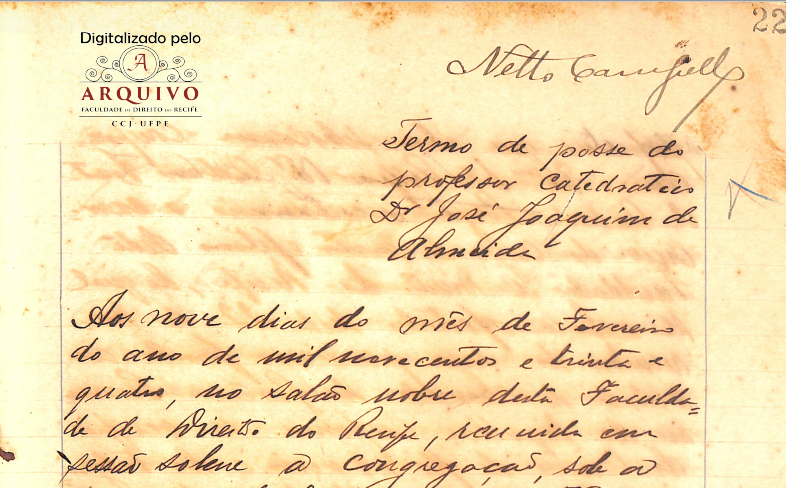 22
Digitalizado pelo
A
ARQUIVO
FACULDADE DE DIREITO DO RECIFE
CCJ-UFPE
Netto Campello
Termo de posse do
professor catedratico
Dr José Joaquim de
Almeida
Aos nove dias do mês de Fevereiro
do ano de mil novecentos e trinta e
quatro, no salão nobre desta Faculda=
de de Direito do Recife, reunida em
sessão solene a congregação, sob a